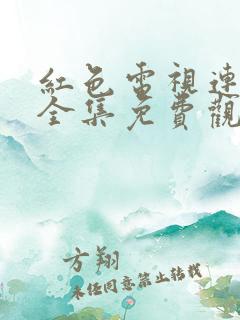 紅色電視連
全集免費觀
方翔
未經同意禁止轉載